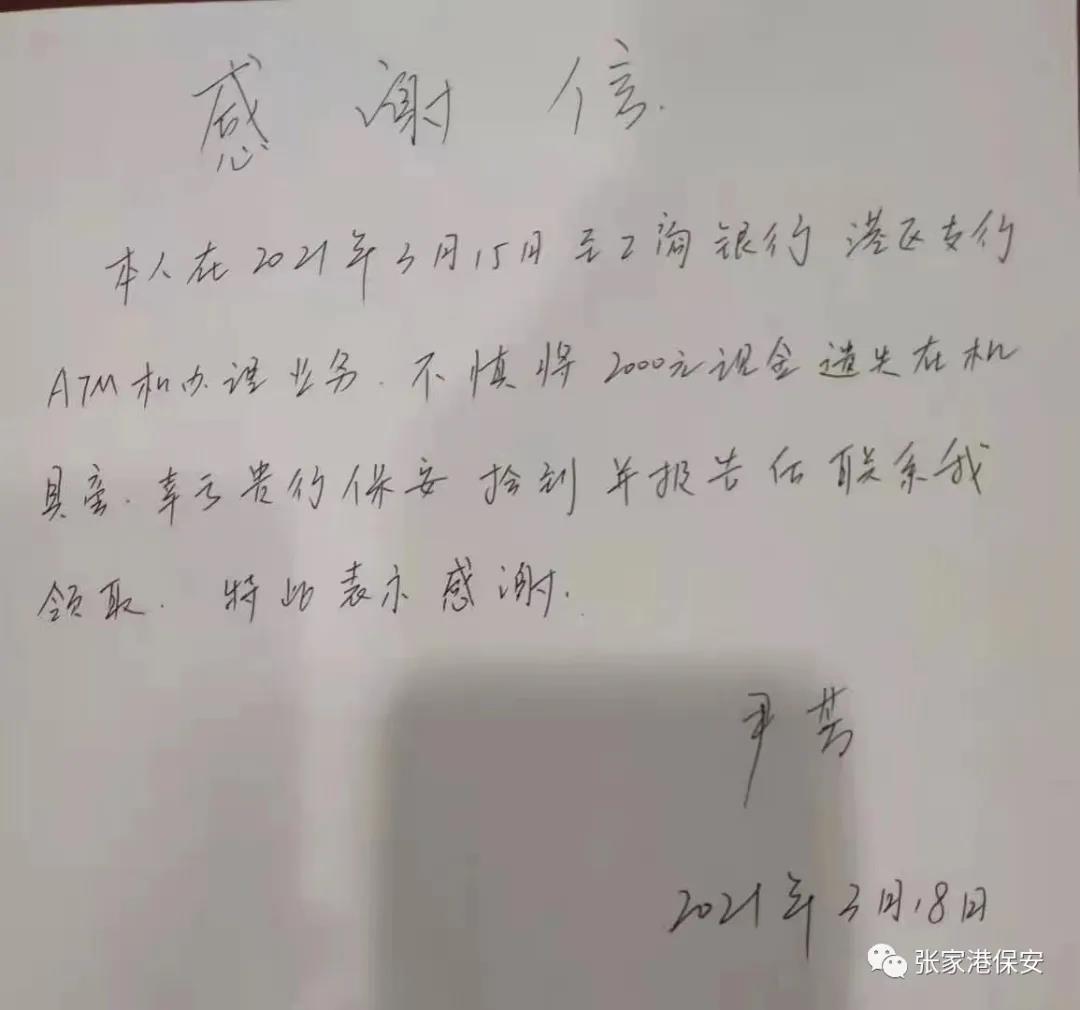 感谢信.
本人在2021年3月15日至工商银行港区支行
ATM机办理业务.不慎将2000元现金遗失在机
具旁.幸亏贵行保安捡到并报告后联系我
领取.特此表示感谢.
尹
2021年3月18日
张家港保安